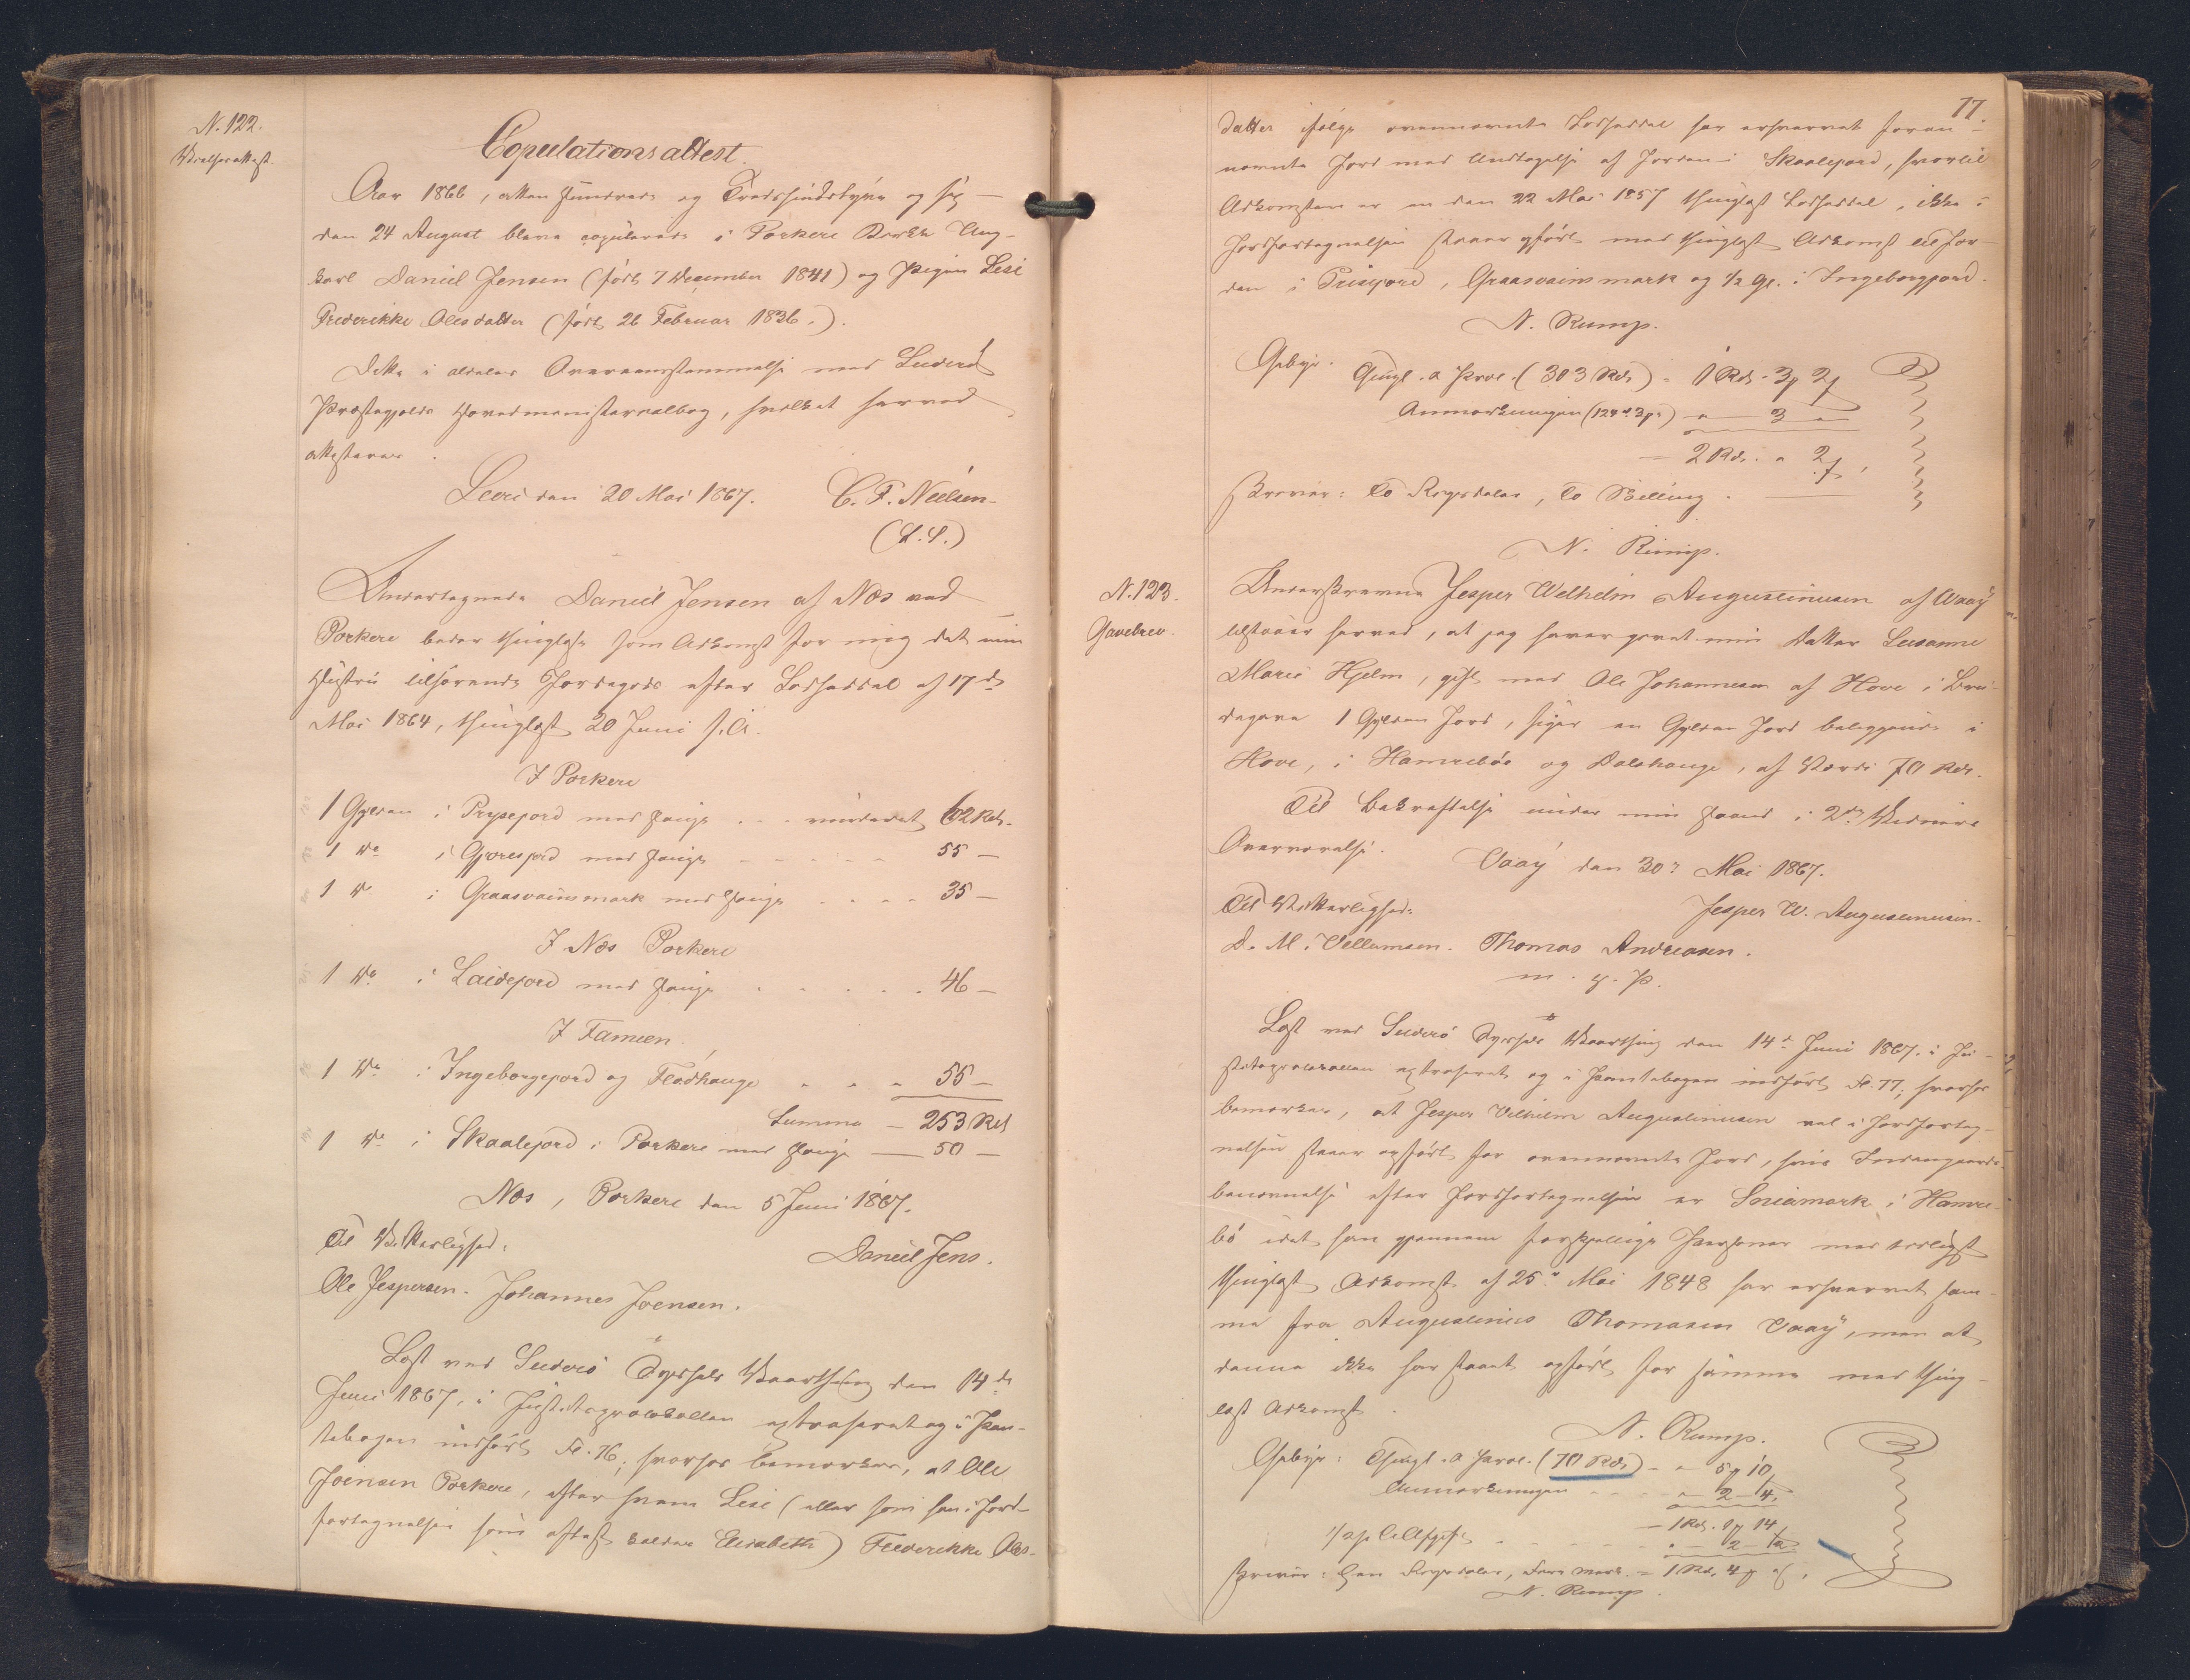 N. 122.
Vielsesattest.
Copulationsattest.
Aar 1866, atten Hundrede og Tredsindstyve og sex
den 24 August bleve copulerede i Porkere Kirke Ung-
karl Daniel Jensen (født 7 December 1841) og Pigen Lise
Frederikke Olesdatter (født 26 Februar 1836.).
Dette i aldeles Overeensstemmelse med Suderø
Præstegjelds Hovedministerialbog, hvilket herved
attesteres.
den 20 Mai 1867. C. F. Nielsen
(L.S.)
Undertegnede Daniel Jensen af Næs ved
Porkere beder thinglæst som Adkomst for mig det min
Hustru tilhørende Jordegods efter Lodseddel af 17de
Mai 1864, thinglæst 20 Juni s.A.
I Porkere
1 Gylden i Prysejord med Hauge - - - vurderet 62 Rd.
1 do i Gjøresjord med Hauge - - - - - 55 -
1 do i Graasvainsmark med Hauge - - - - 35 -
I Næs Porkere
1 do i Laidejord med Hauge - - - - - 46 -
I Famien
1 do i Ingeborgejord og Flødhauge - - - 55 -
Summa - 253 Rd
1 do i Skaalejord i Porkere med Hauge - 50 -
Næs, Porkere den 5 Juni 1867.
Til Vitterlighed: Daniel Jens.
Ole Jespersen. Johannes Joensen.
Læst ved Suderø Syssels Vaarthing den 14de
Juni 1867, i Justitsprotokollen extraheret og i Pan-
tebogen indført Fo. 76; hvorhos bemærkes, at Ole
Joensen Porkere, efter hvem Lise (eller som hun i Jord-
fortegnelsen som oftest kaldes Elisabeth) Frederikke Oles-
77.
datter ifølge ovennævnte Lodseddel har erhvervet foran-
nævnte Jord med Undtagelse af Jorden i Skaalejord, hvortil
Adkomsten er en den 22 Mai 1857 thinglæst Lodseddel, ikke i
Jordfortegnelsen staaer opført med thinglæst Adkomst til Jor-
den i Prisejord, Graasvainsmark og 1/2 Gl. i Ingeborgjord.
N. Rump.
Gebyr. Thingl. a Prot. (303 Rd.) - 1 Rd. 3 2
Anmærkningen (124 3) - 3 -
2 Rd. " 2
Skriver: To Rigsdaler, to Skilling.
N. Rump.
N. 123.
Gavebrev.
Underskrevne Jesper Welhelm Augustinusen af Waaÿ
tilstaaer herved, at jeg haver givet min Datter Susanne
Marie Hjelm, gift med Ole Johannesen af Hove i Bru-
degave 1 Gylden Jord, siger en Gylden Jord beliggende i
Hove, i Hamrebø og Dalshauge, af Værdi 70 Rd.
Til Bekræftelse under min Haand i 2de Vidners
Overværelse.
Vaaÿ den 30 Mai 1867.
Til Vitterlighed: Jesper W. Augustinusen.
D. M. Vellumsen. Thomas Andreasen.
m. f. P.
Læst ved Suderø Syssels Vaarthing den 14de Juni 1867, i Ju-
stitsprotokollen extraheret og i Pantebogen indført Fo. 77; hvorhos
bemærkes, at Jesper Vilhelm Augustinusen vel i Jordforteg-
nelsen staaer opført for ovennævnte Jord, hvis
benævnelse efter Jordfortegnelsen er Sniamark i Hamre-
bø idet han gjennem forskjellige Personer med
thinglæst Adkomst af 25de Mai 1848 har erhvervet sam-
me fra Augustinus Thomasen Vaaÿ, men at
denne ikke har staaet opført for samme med thing-
læst Adkomst.
N. Rump.
Gebyr: Thingl. a Prot. (70 Rd.) - " 5 10
Anmærkningen - - - " 2 - 4
- 1 Rd. 1 14
Skriver: Een Rigsdaler, fire Mark. = 1 Rd. 4
N. Rump.